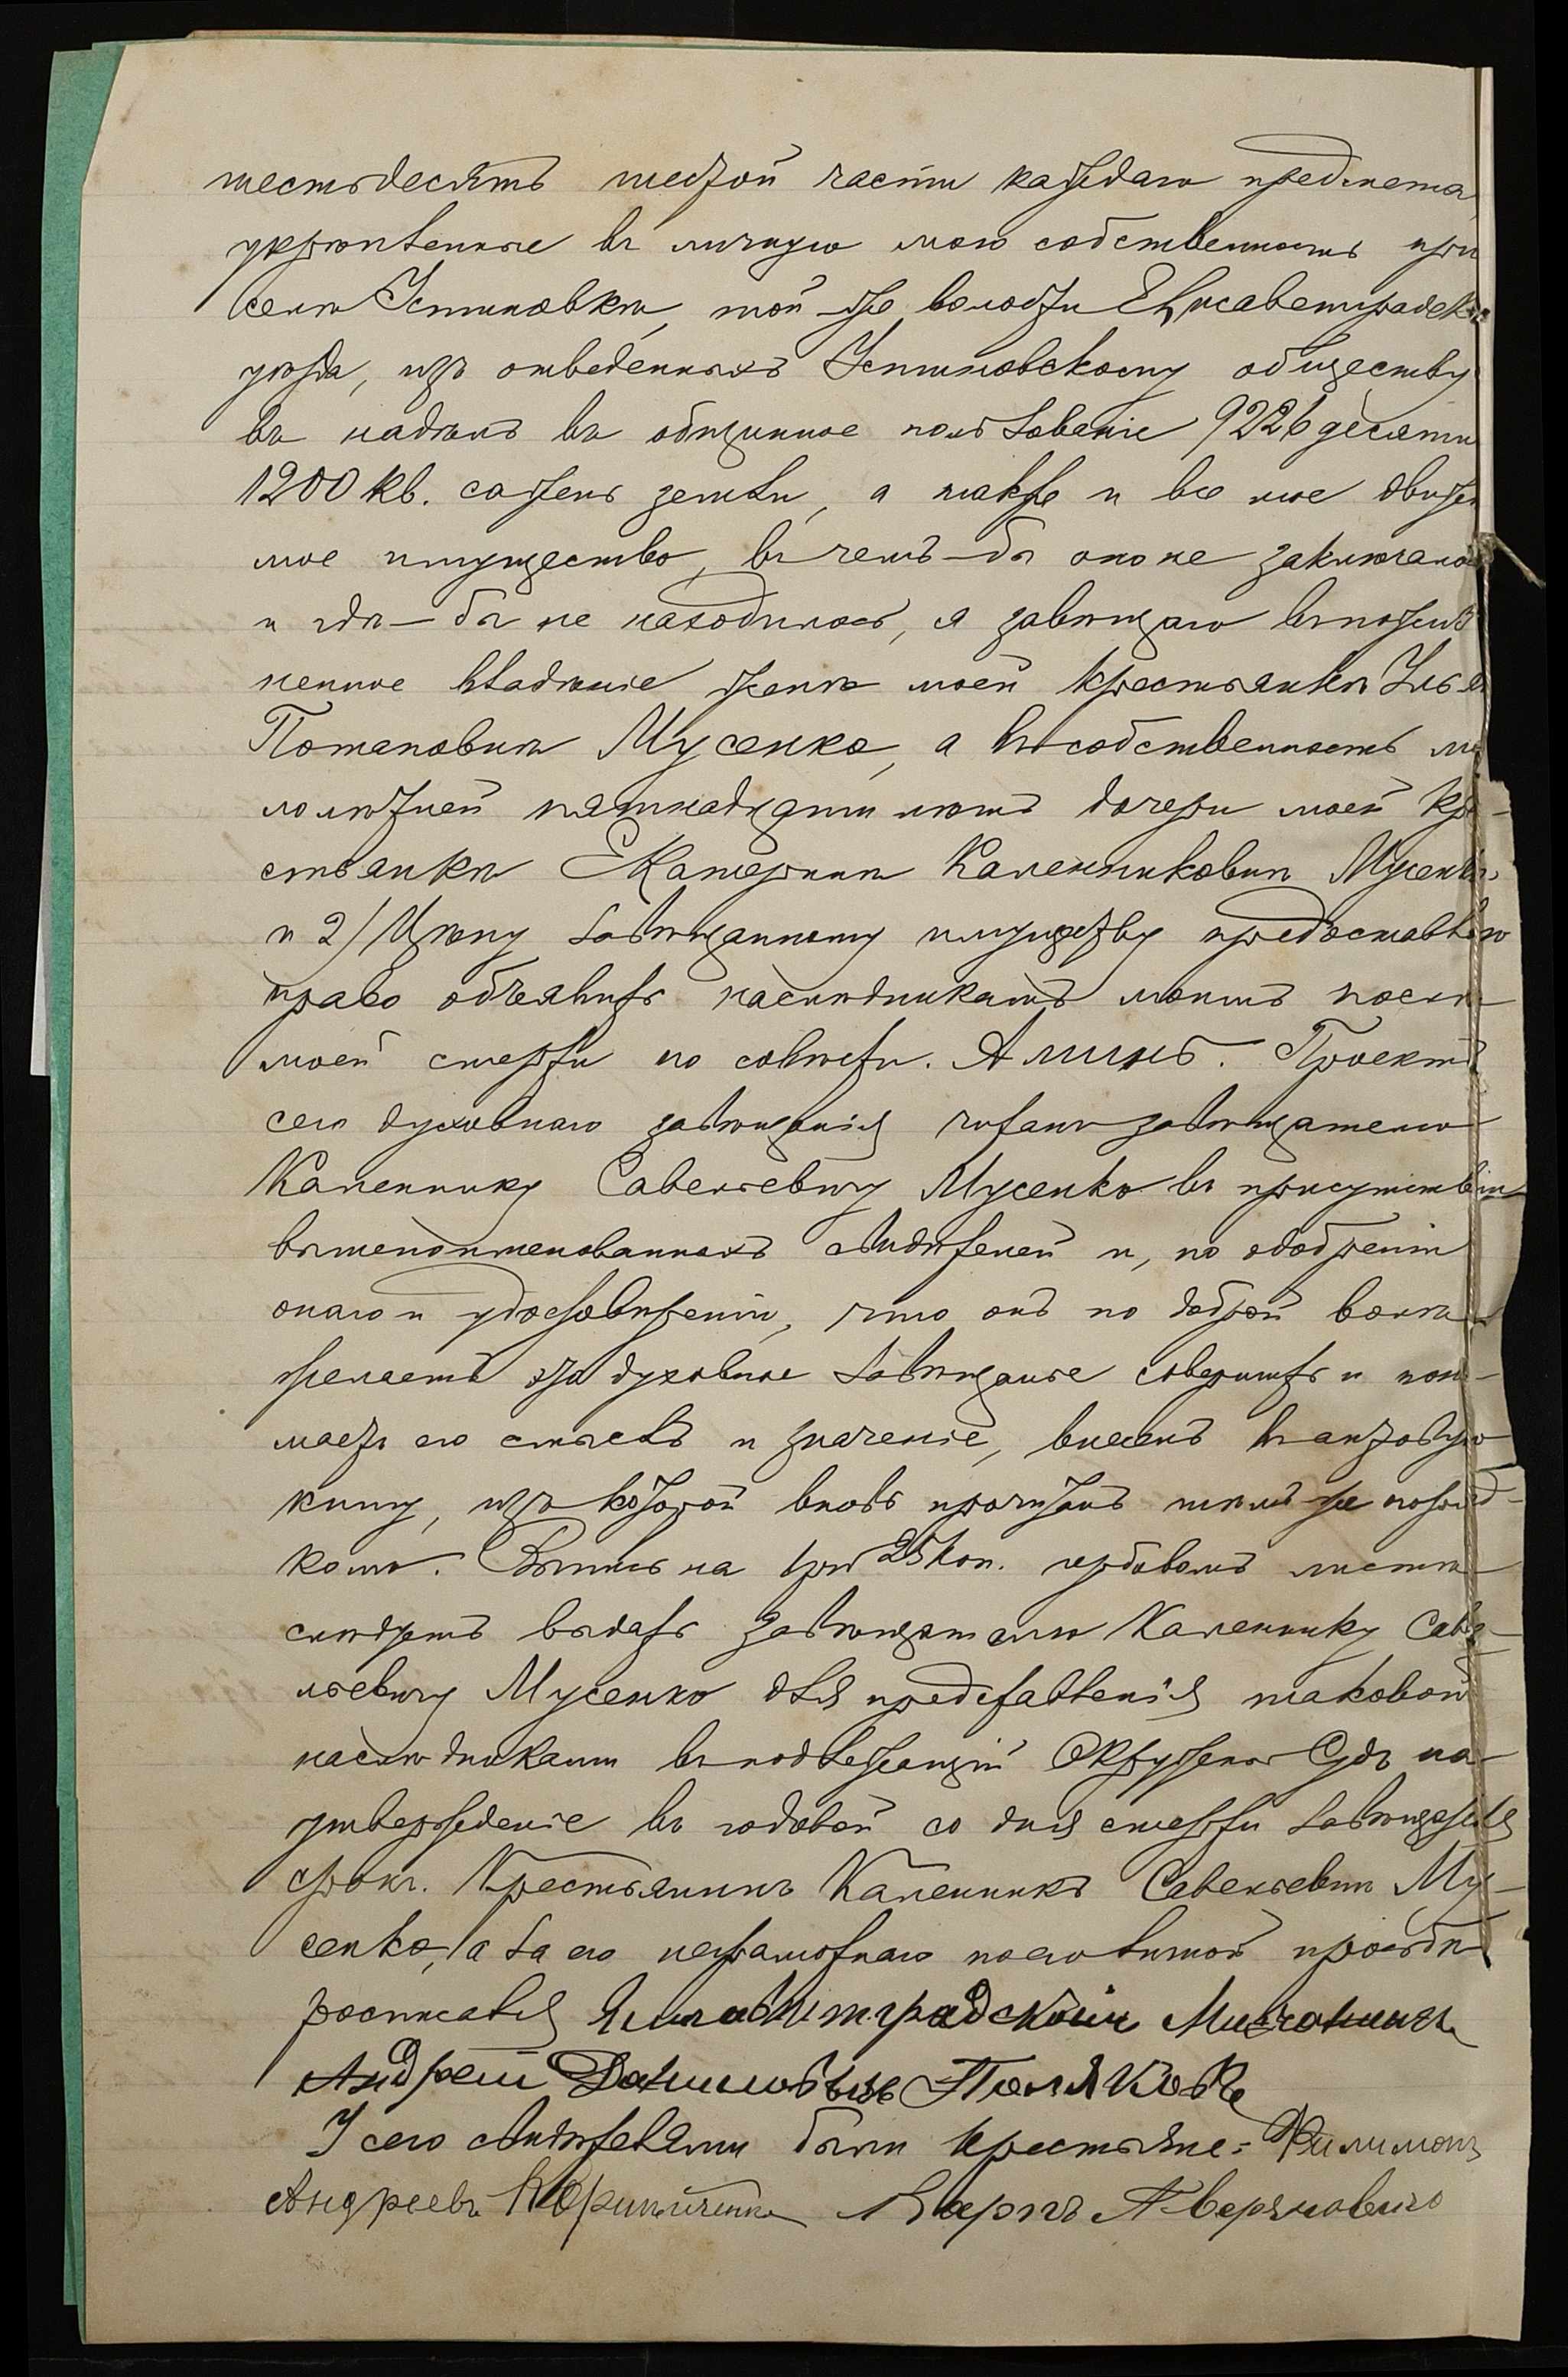 шестьдесятъ шестой части каждаго предмета,
укрѣпленные въ личную мою собственность при
селѣ Устиновкѣ, той-же волости Елисаветградск
уѣзда, изъ отведенныхъ Устиновскому обществу
въ надѣлъ въ общинное пользованіе 9226 десяти
1200 кв. сажень земли, а также и все мое движи
мое имущество, въ чемъ-бы оно не заключало
и гдѣ-бы не находилось, я завѣщаю въ пожиз
ненное владѣніе женѣ моей крестьянкѣ Улья
Потаповнѣ Мусенко, а въ собственность ма
лолѣтней пятнадцати лѣтъ дочери моей кре-
стьянкѣ Екатеринѣ Каленниковнѣ Мусенко,
и 2/ Цѣну завѣщанному имуществу предоставляю
право объявить наслѣдникамъ моимъ послѣ
моей смерти по совѣсти. Аминь. Проектъ
сего духовнаго завѣщанія читанъ завѣщателю
Каленнику Савельевичу Мусенко въ присутствіи
вышепоименованныхъ свидѣтелей и, по одобреніи
онаго и удостовѣреніи, что онъ по доброй волѣ
желаетъ это духовное завѣщаніе совершить и пони-
маетъ его смыслъ и значеніе, внесенъ въ актовую
книгу, изъ которой вновь прочитанъ тѣмъ-же поряд-
комъ. Выпись на 1 р. 25 коп. гербовомъ листѣ
слѣдуетъ выдать завѣщателю Каленнику Саве-
льевичу Мусенко для представленія таковой
наслѣдниками въ подлежащій Окружный Судъ на
утвержденіе въ годовой со дня смерти завѣщателя
срокъ. Крестьянинъ Каленникъ Савельевичъ Му-
сенко, а за его неграмотнаго по его личной просьбѣ
росписался Елисаветградскій Мѣщанинъ
Андрей Даниловичъ Поляковъ
У сего свидѣтелями были крестьяне: Филимонъ
Андреевъ Карпъ Аверьяновичъ